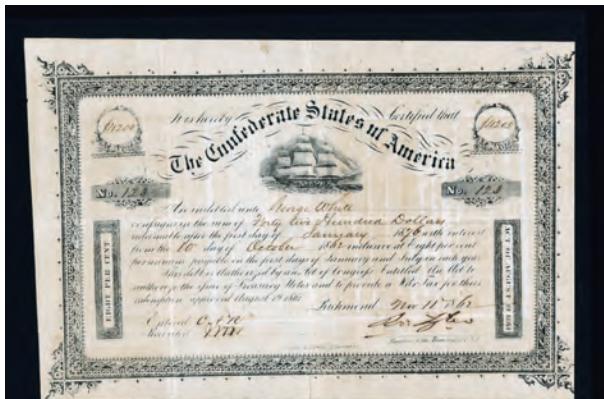 $4200
It is hereby Certified that
$4200
The Confederate States of America
No. 123
No. 123
Are indebted unto George White
or assigns in the sum of Forty two Hundred Dollars
redeemable after the first day of January 1876 with interest
from the 10 day of October 1862 inclusive at Eight per cent
per annum payable on the first days of January and July in each year
This debt is Authorized by an Act of Congress Entitled An Act to
authorize the issue of Treasury Notes and to provide a War Tax for their
redemption approved August 19 1861
EIGHT PER CENT
ACT OF AUGUST 19 1861
Richmond Nov 11 1862
Entered
Recorded